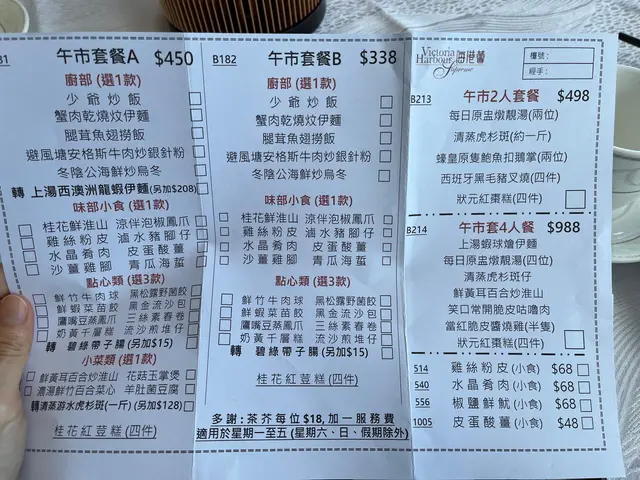 B1 午市套餐A $450
廚部 (選1款)
少爺炒飯
蟹肉乾燒炆伊麵
腿茸魚翅撈飯
避風塘安格斯牛肉炒銀針粉
冬陰公海鮮炒烏冬
轉 上湯西澳洲龍蝦伊麵(另加$208)
味部小食 (選1款)
桂花鮮淮山 涼伴泡椒鳳爪
雞絲粉皮 滷水豬腳仔
水晶肴肉 皮蛋酸薑
沙薑雞腳 青瓜海蜇
點心類 (選3款)
鮮竹牛肉球 黑松露野菌餃
鮮蝦菜苗餃 黑金流沙包
鷹嘴豆蒸鳳爪 三絲素春卷
奶黃千層糕 流沙煎堆仔
轉 碧綠帶子腸 (另加$15)
小菜類 (選1款)
鮮黃耳百合炒淮山 花菇玉掌煲
濃湯鮮竹百合菜心 羊肚菌豆腐
轉清蒸游水虎杉斑(一斤) (另加$128)
桂花紅荳糕 (四件)
B182 午市套餐B $338
廚部 (選1款)
少爺炒飯
蟹肉乾燒炆伊麵
腿茸魚翅撈飯
避風塘安格斯牛肉炒銀針粉
冬陰公海鮮炒烏冬
味部小食 (選1款)
桂花鮮淮山 涼伴泡椒鳳爪
雞絲粉皮 滷水豬腳仔
水晶肴肉 皮蛋酸薑
沙薑雞腳 青瓜海蜇
點心類 (選3款)
鮮竹牛肉球 黑松露野菌餃
鮮蝦菜苗餃 黑金流沙包
鷹嘴豆蒸鳳爪 三絲素春卷
奶黃千層糕 流沙煎堆仔
轉 碧綠帶子腸 (另加$15)
桂花紅荳糕 (四件)
多謝:茶芥每位$18,加一服務費
適用於星期一至五 (星期六、日、假期除外)
Victoria Harbour Supreme 海港薈
檯號:
經手:
B213 午市2人套餐 $498
每日原盅燉靚湯(兩位)
清蒸虎杉斑(約一斤)
蠔皇原隻鮑魚扣鵝掌(兩位)
西班牙黑毛豬叉燒(四件)
狀元紅棗糕(四件)
B214 午市套4人餐 $988
上湯蝦球燴伊麵
每日原盅燉靚湯(四位)
清蒸虎杉斑仔
鮮黃耳百合炒淮山
笑口常開脆皮咕嚕肉
當紅脆皮醬燒雞(半隻)
狀元紅棗糕(四件)
514 雞絲粉皮(小食) $68
540 水晶肴肉(小食) $68
556 椒鹽鮮魷(小食) $68
1005 皮蛋酸薑(小食) $48